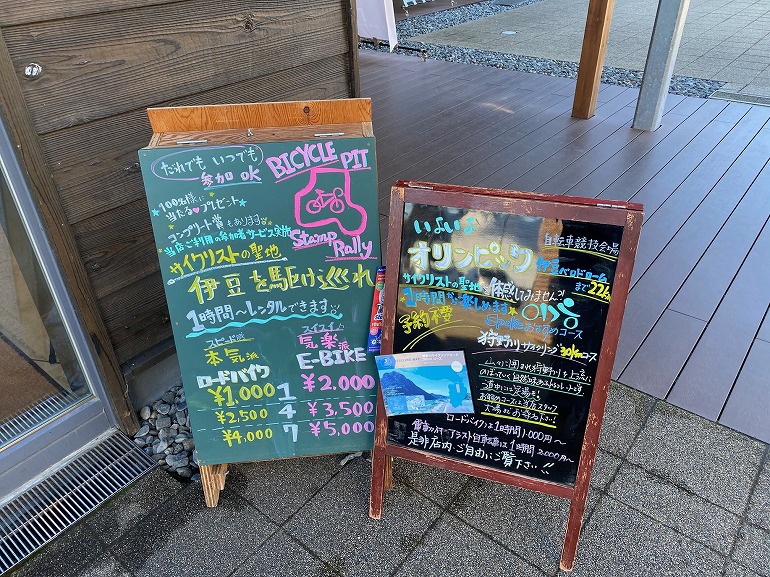 だれでも いつでも
参加 OK
BICYCLE PIT
100名様に
当たる プレゼント
コンプリート賞もあります
当店ご利用の参加者サービス実施
Stamp
Rally
サイクリストの聖地
伊豆を駆け巡れ
1時間〜レンタルできます
スピード派
本気派
ロードバイク
スイスイ♪
気楽派
E-BIKE
¥1,000 1 ¥2,000
¥2,500 4 ¥3,500
¥4,000 7 ¥5,000
いよいよ
オリンピック
自転車競技会場
伊豆ベロドローム
まで22km
サイクリストの聖地を体感してみませんか
1時間から楽しめます
予約不要
おすすめコース
狩野川サイクリング30kmコース
山々に囲まれ狩野川を上流に
ロードバイクは1時間1,000円〜
電動アシスト自転車は1時間2,000円〜
是非店内ご自由にご覧下さい!!